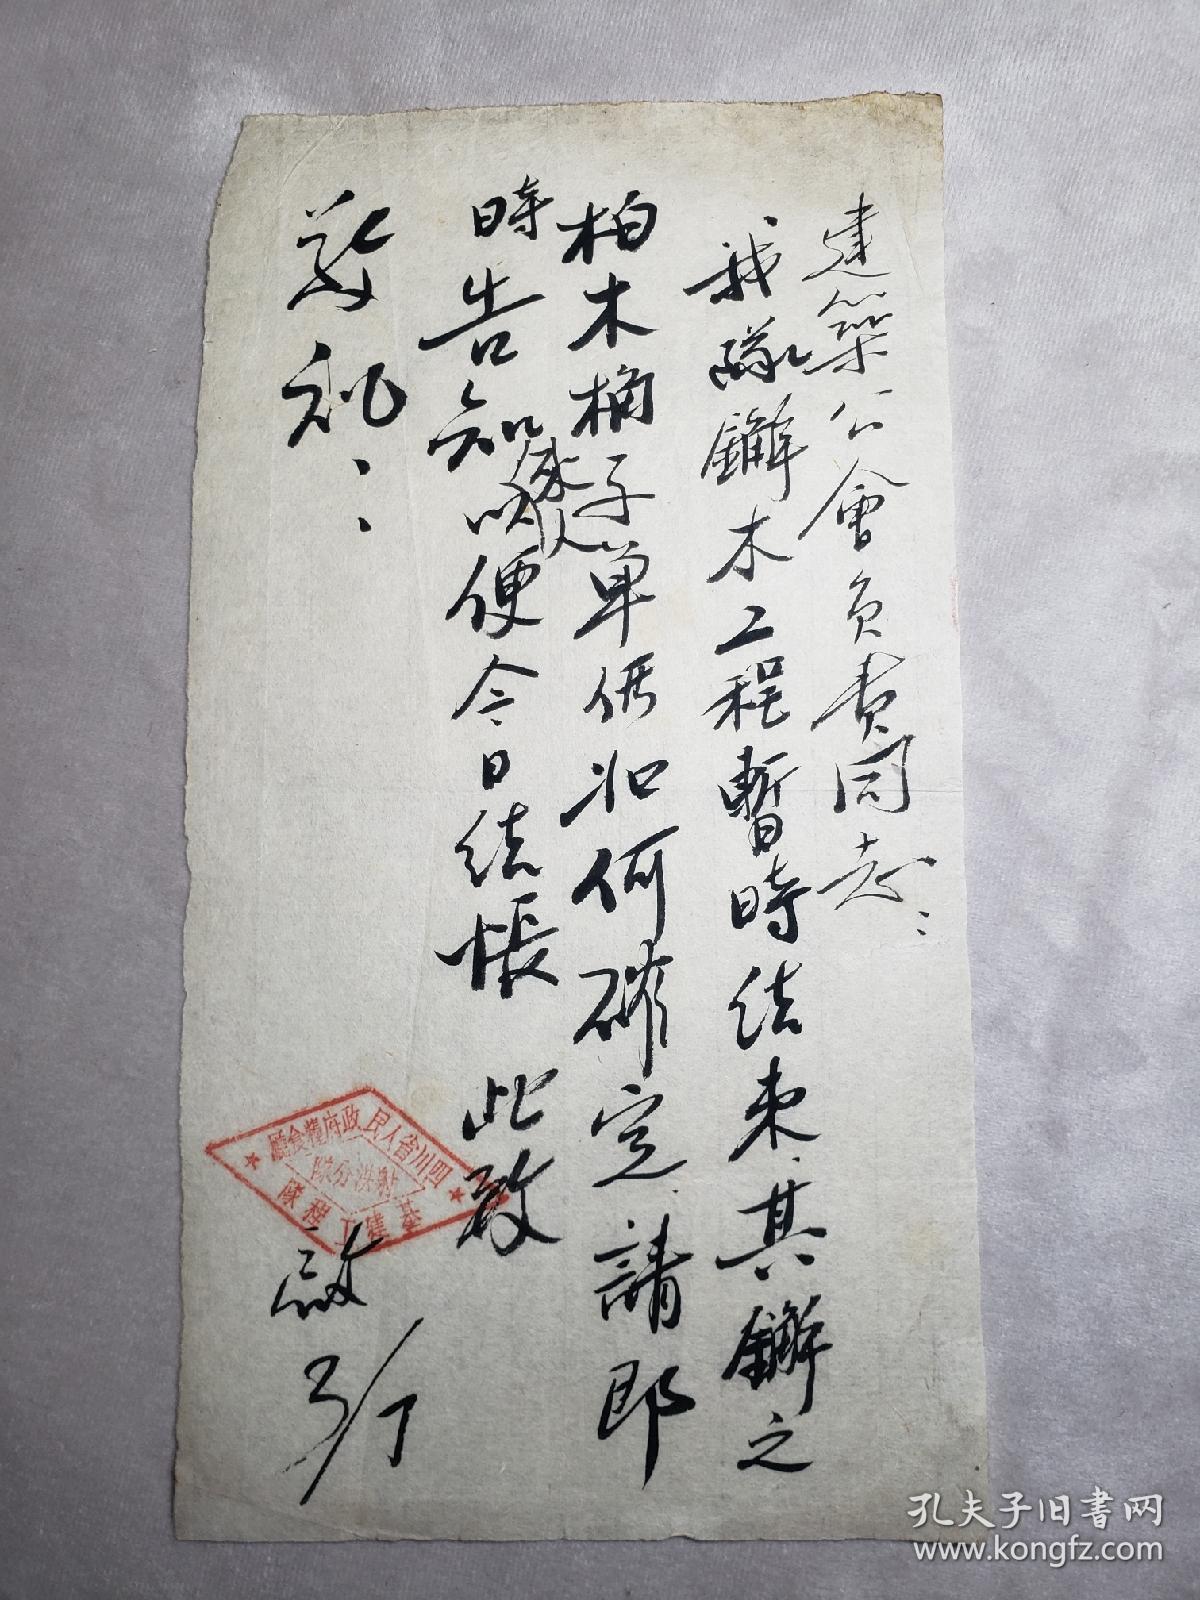 建築公會负责同志：
我隊鏟木工程暫時结束、其鏟之
柏木桶子单価如何確定、請即
時告知來人以便今日结帳 此致
敬礼：
四川省人民政府糧食廳
射洪分隊
基建工程隊
啟 3/7
孔夫子旧书网
www.kongfz.com